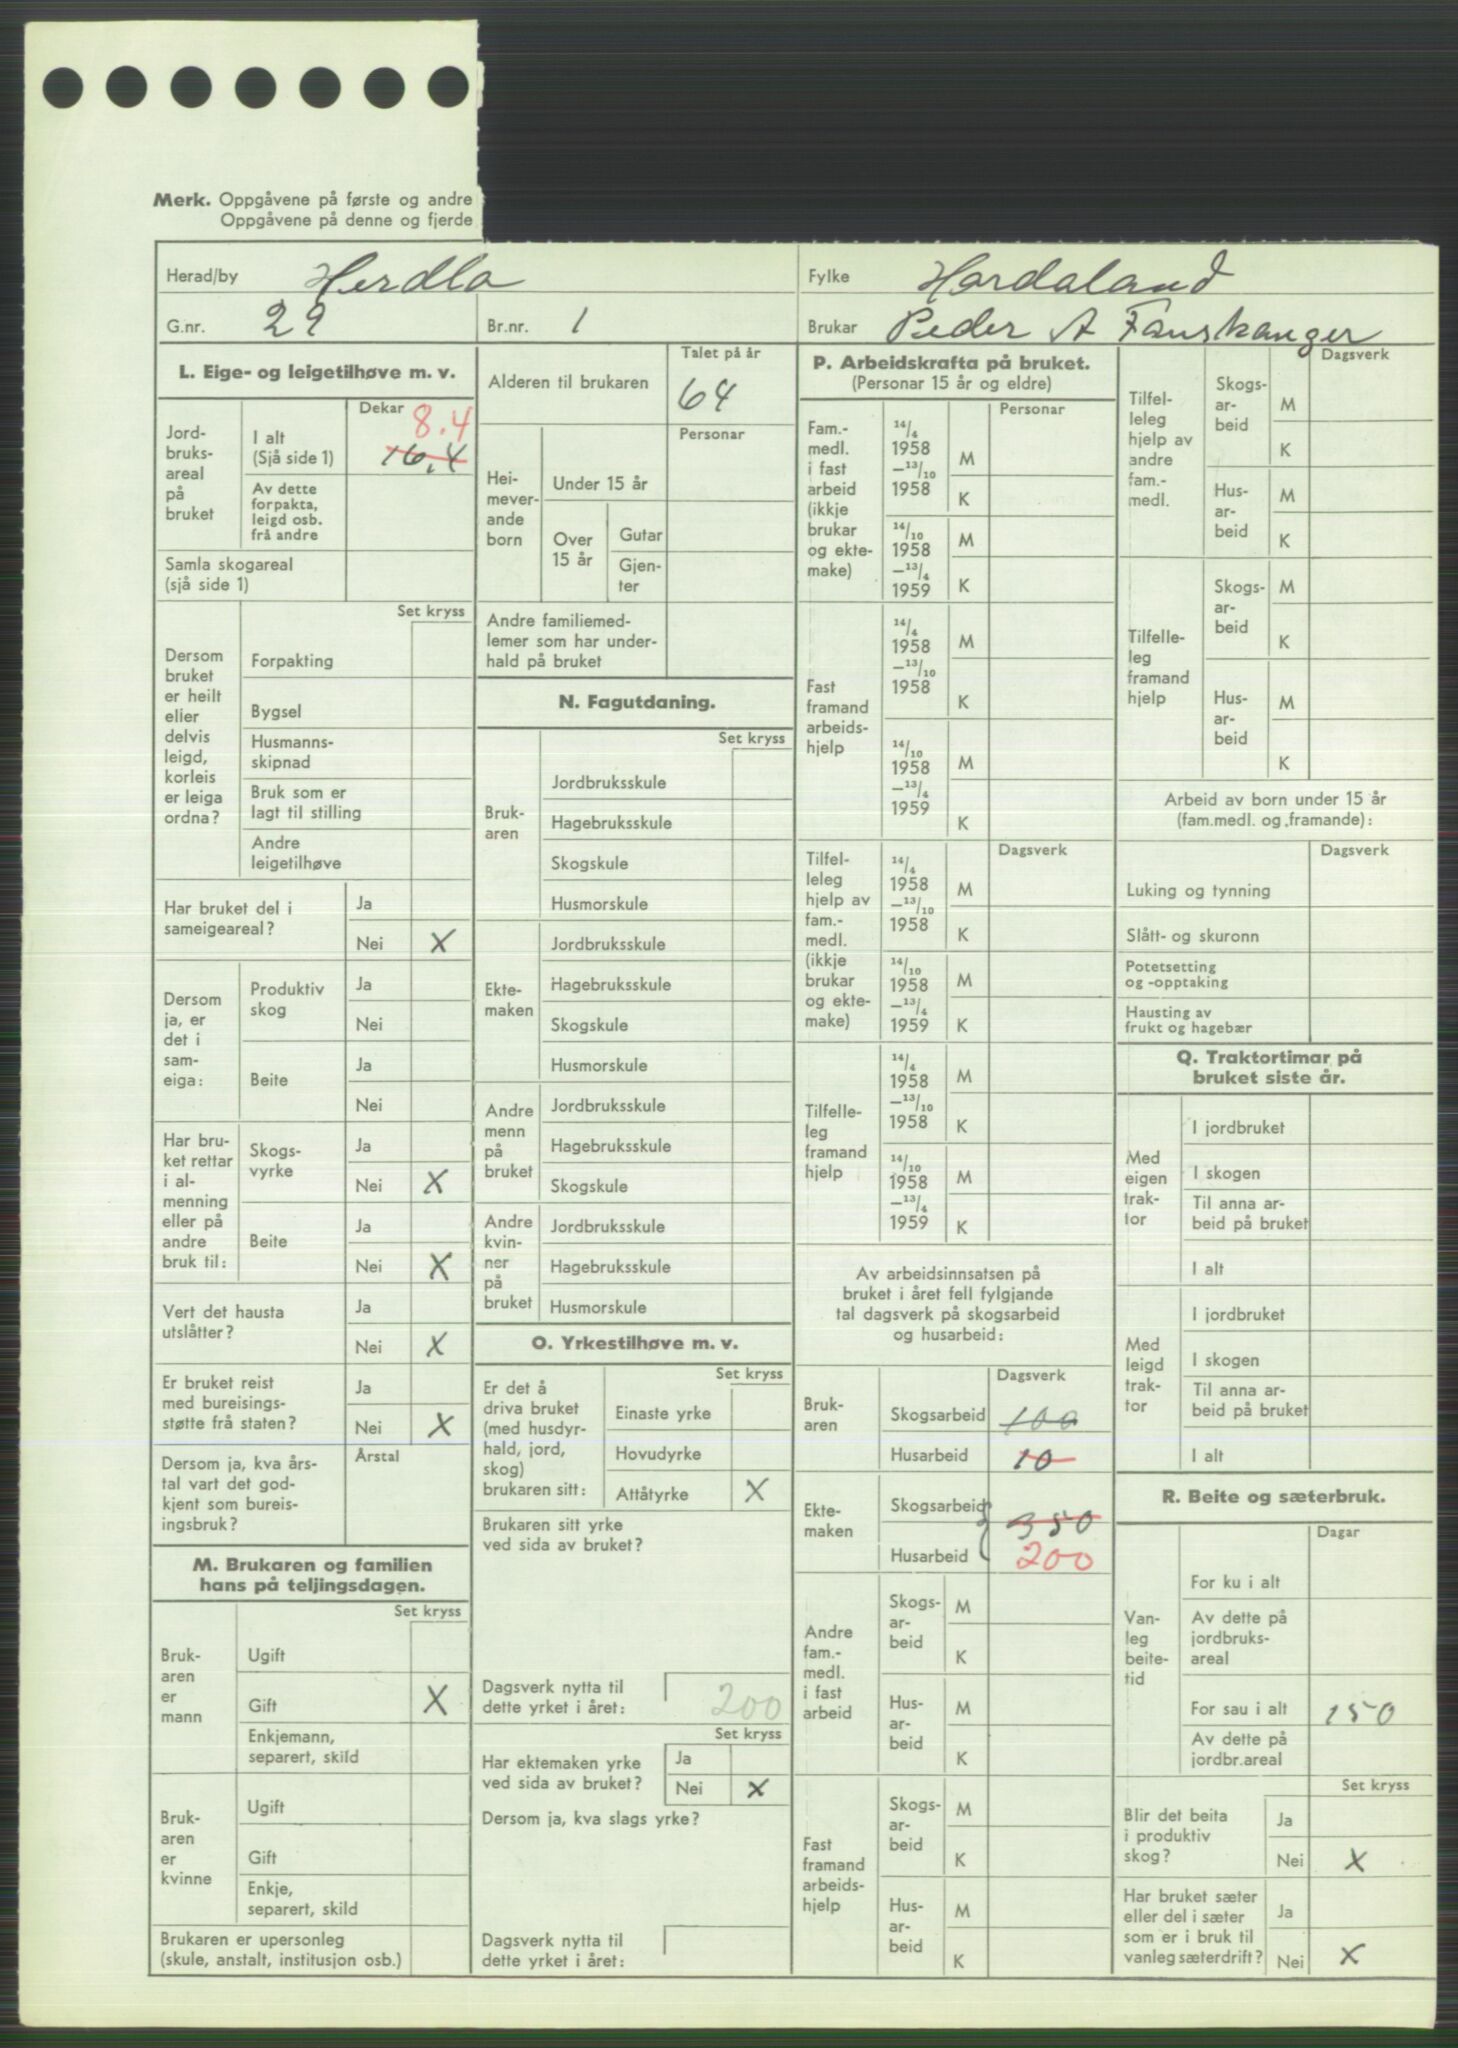 Merk. Oppgåvene på første og andre
Oppgåvene på denne og fjerde
Herad/by Herdla
Fylke Hordaland
G.nr. 29
Br.nr. 1
Brukar Peder A Fauskanger
L. Eige- og leigetilhøve m. v.
Dekar
Jord-
bruks-
areal
på
bruket
I alt
(Sjå side 1)
8.4
16.4
Av dette
forpakta,
leigd osb.
frå andre
Samla skogareal
(sjå side 1)
Set kryss
Dersom
bruket
er heilt
eller
delvis
leigd,
korleis
er leiga
ordna?
Forpakting
Bygsel
Husmanns-
skipnad
Bruk som er
lagt til stilling
Andre
leigetilhøve
Har bruket del i
sameigeareal?
Ja
Nei X
Dersom
ja, er
det i
sam-
eiga:
Produktiv
skog
Ja
Nei
Beite
Ja
Nei
Har bru-
ket rettar
i al-
menning
eller på
andre
bruk til:
Skogs-
vyrke
Ja
Nei X
Beite
Ja
Nei X
Vert det hausta
utslåtter?
Ja
Nei X
Er bruket reist
med bureisings-
støtte frå staten?
Ja
Nei X
Dersom ja, kva års-
tal vart det god-
kjent som bureis-
ingsbruk?
Årstal
M. Brukaren og familien
hans på teljingsdagen.
Set kryss
Bruk-
aren
er
mann
Ugift
Gift X
Enkjemann,
separert, skild
Bruk-
aren
er
kvinne
Ugift
Gift
Enkje,
separert, skild
Brukaren er upersonleg
(skule, anstalt, institusjon osb.)
Talet på år
Alderen til brukaren 64
Personar
Hei-
mever-
ande
born
Under 15 år
Over
15 år
Gutar
Gjen-
ter
Andre familiemed-
lemer som har under-
hald på bruket
N. Fagutdaning.
Set kryss
Bruk-
aren
Jordbruksskule
Hagebruksskule
Skogskule
Husmorskule
Ekte-
maken
Jordbruksskule
Hagebruksskule
Skogskule
Husmorskule
Andre
menn
på
bruket
Jordbruksskule
Hagebruksskule
Skogskule
Andre
kvin-
ner
på
bruket
Jordbruksskule
Hagebruksskule
Husmorskule
O. Yrkestilhøve m. v.
Set kryss
Er det å
driva bruket
(med husdyr-
hald, jord,
skog)
brukaren sitt:
Einaste yrke
Hovudyrke
Attåtyrke X
Brukaren sitt yrke
ved sida av bruket?
Dagsverk nytta til
dette yrket i året: 200
Set kryss
Har ektemaken yrke
ved sida av bruket?
Ja
Nei X
Dersom ja, kva slags yrke?
Dagsverk nytta til
dette yrket i året:
P. Arbeidskrafta på bruket.
(Personar 15 år og eldre)
Personar
Fam.-
medl.
i fast
arbeid
(ikkje
brukar
og ekte-
make)
14/4
1958
–13/10
1958
M
K
14/10
1958
–13/4
1959
M
K
Fast
framand
arbeids-
hjelp
14/4
1958
–13/10
1958
M
K
14/10
1958
–13/4
1959
M
K
Dagsverk
Tilfel-
leleg
hjelp av
fam.-
medl.
(ikkje
brukar
og ekte-
make)
14/4
1958
–13/10
1958
M
K
14/10
1958
–13/4
1959
M
K
Tilfelle-
leg
framand
hjelp
14/4
1958
–13/10
1958
M
K
14/10
1958
–13/4
1959
M
K
Av arbeidsinnsatsen på
bruket i året fell fylgjande
tal dagsverk på skogsarbeid
og husarbeid:
Dagsverk
Bruk-
aren
Skogsarbeid 100
Husarbeid 10
Ekte-
maken
Skogsarbeid
350
Husarbeid 200
Andre
fam.-
medl.
i fast
arbeid
Skogs-
ar-
beid
M
K
Hus-
ar-
beid
M
K
Fast
framand
arbeids-
hjelp
Skogs-
ar-
beid
M
K
Hus-
ar-
beid
M
K
Dagsverk
Tilfel-
leleg
hjelp av
andre
fam.-
medl.
Skogs-
ar-
beid
M
K
Hus-
ar-
beid
M
K
Tilfelle-
leg
framand
hjelp
Skogs-
ar-
beid
M
K
Hus-
ar-
beid
M
K
Arbeid av born under 15 år
(fam.medl. og framande):
Dagsverk
Luking og tynning
Slått- og skuronn
Potetsetting
og -opptaking
Hausting av
frukt og hagebær
Q. Traktortimar på
bruket siste år.
Med
eigen
trak-
tor
I jordbruket
I skogen
Til anna ar-
beid på bruket
I alt
Med
leigd
trak-
tor
I jordbruket
I skogen
Til anna ar-
beid på bruket
I alt
R. Beite og sæterbruk.
Dagar
Van-
leg
beite-
tid
For ku i alt
Av dette på
jordbruks-
areal
For sau i alt 150
Av dette på
jordbr.areal
Set kryss
Blir det beita
i produktiv
skog?
Ja
Nei X
Har bruket sæter
eller del i sæter
som er i bruk til
vanleg sæterdrift?
Ja
Nei X